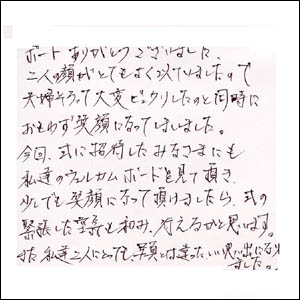 ボードありがとうございました。
二人の顔がとてもよく似ていましたので
夫婦そろって大変ビックリしたのと同時に
おもわず笑顔になってしまいました。
今回、式に招待したみなさまにも
私達のウェルカムボードを見て頂き、
少しでも笑顔になって頂けましたら、式の
緊張した空気も和み、行えるかと思います。
また私達二人にとっても、写真とは違ったいい思い出になり
ました。